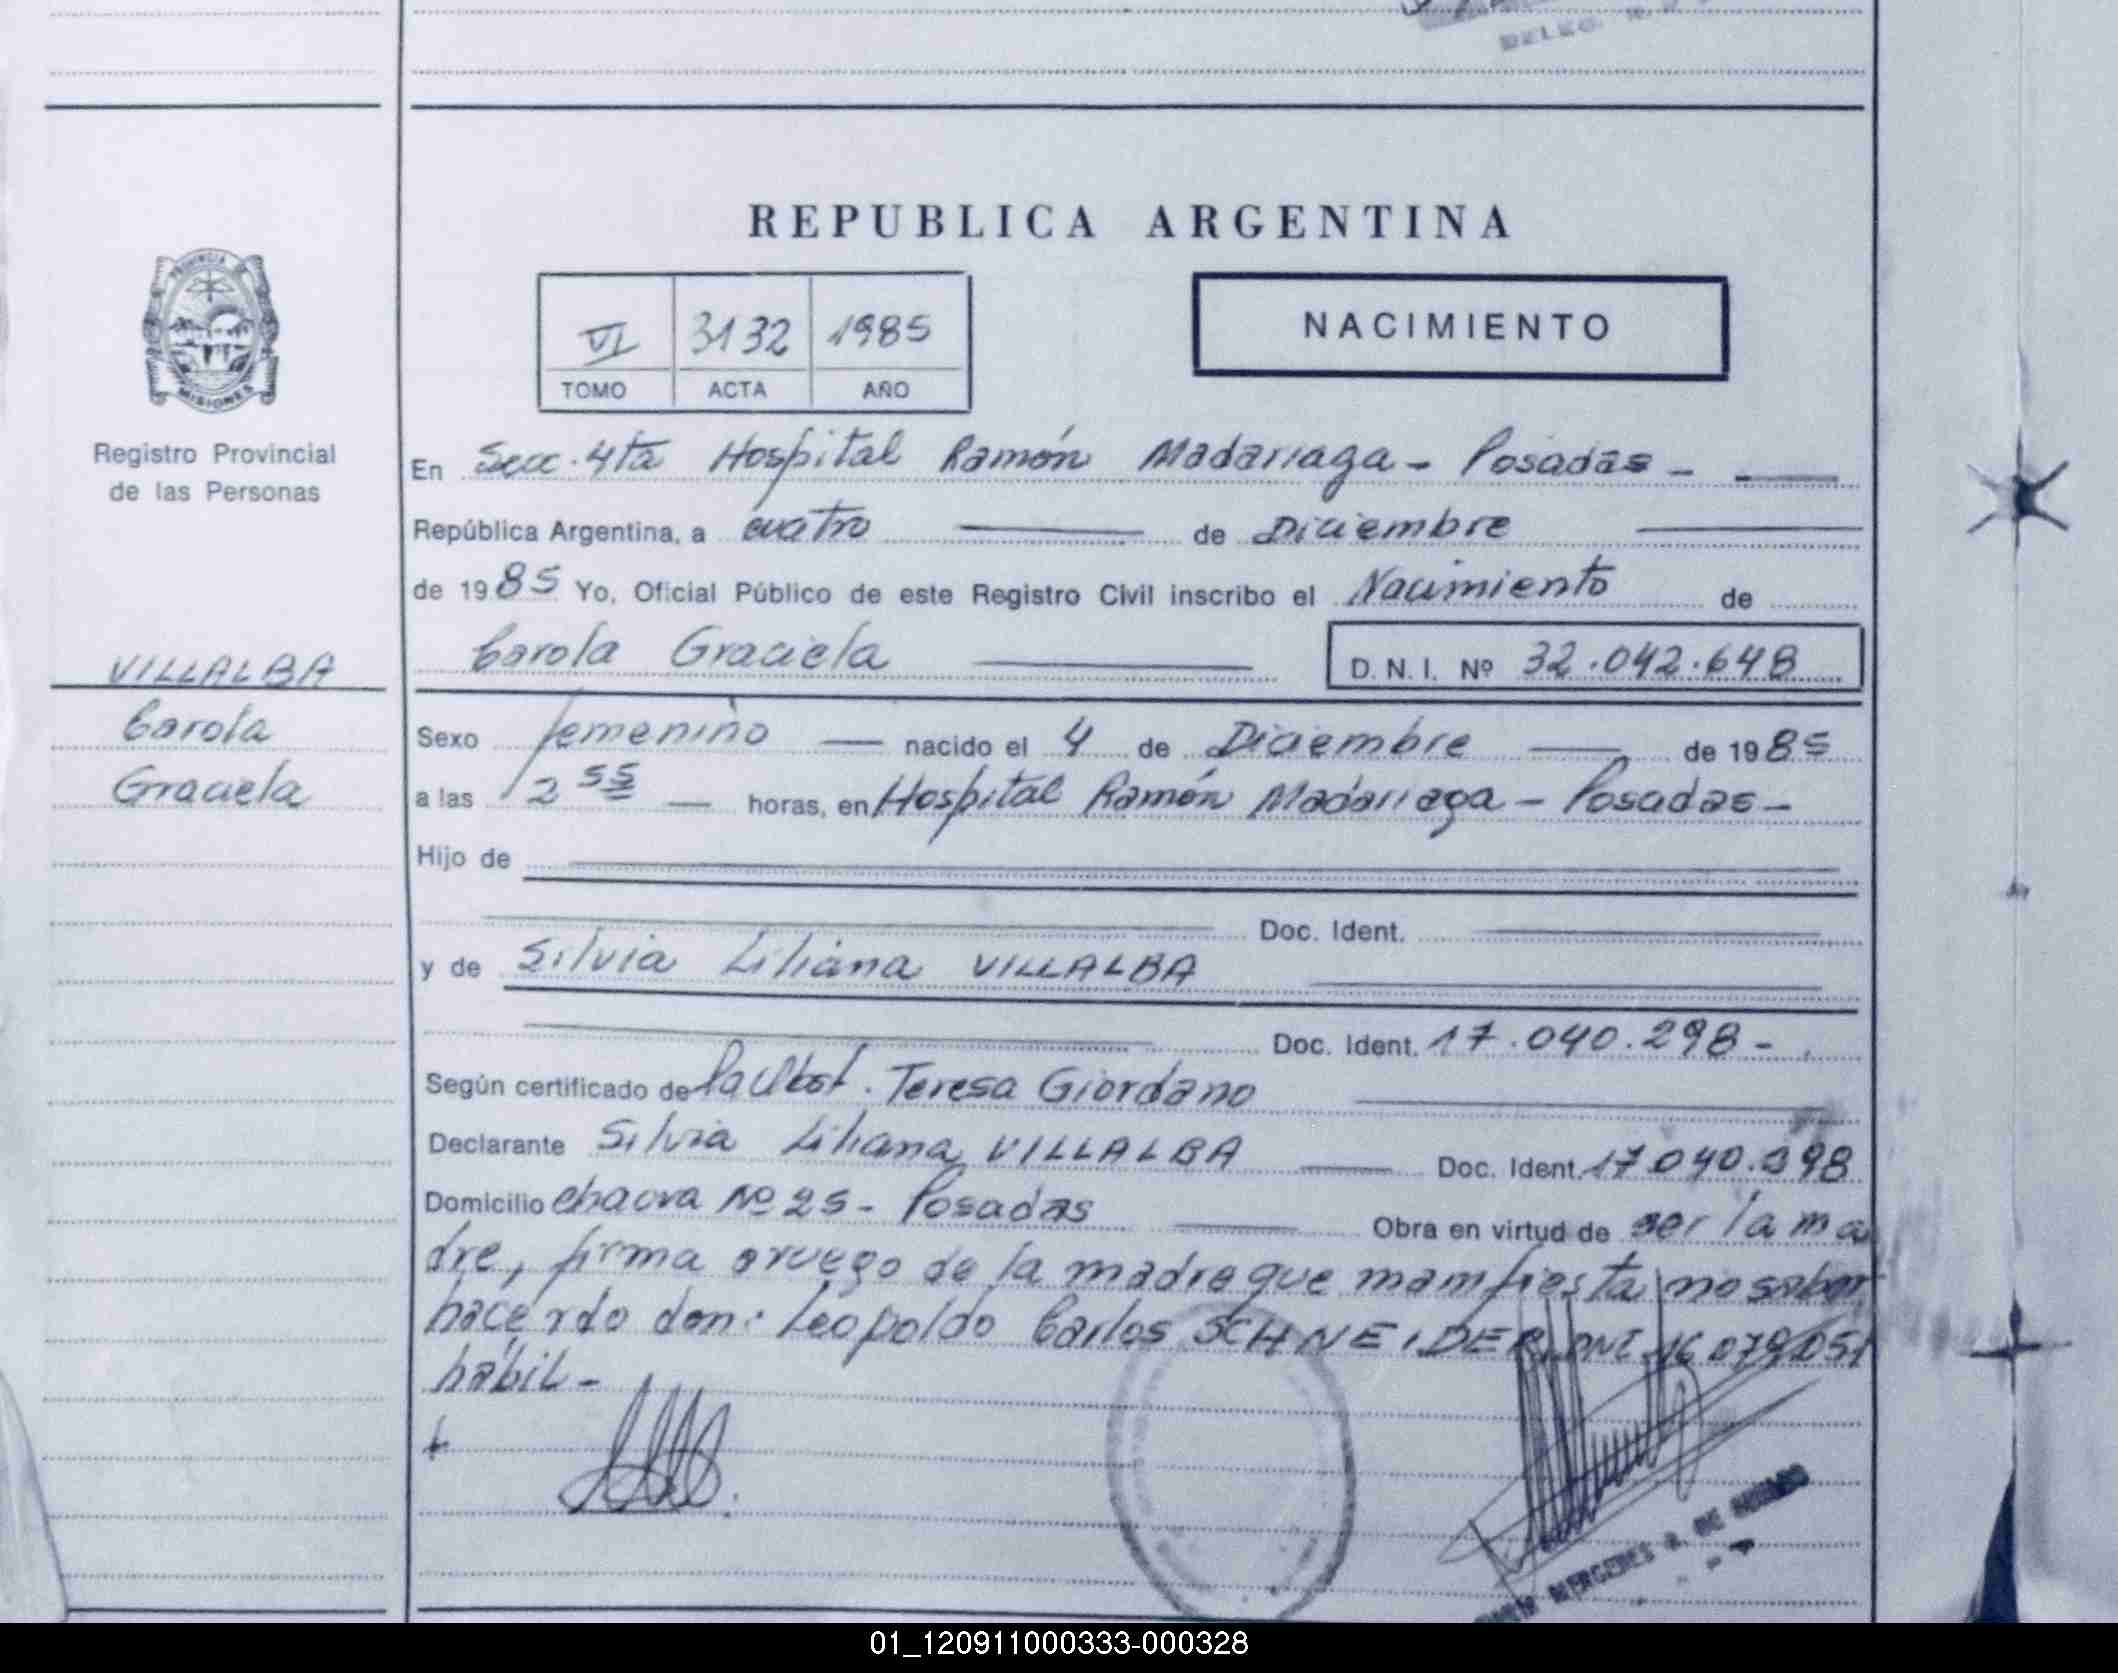 REPUBLICA ARGENTINA
PROVINCIA DE
MISIONES
Registro Provincial
de las Personas
VI 3132 1985
TOMO ACTA AÑO
NACIMIENTO
En Secc. 4ta Hospital Ramón Madariaga - Posadas -
República Argentina, a cuatro de Diciembre
de 1985 Yo, Oficial Público de este Registro Civil inscribo el Nacimiento de
Carola Graciela D.N.I. Nº 32.042.648
VILLALBA
Carola
Graciela
Sexo femenino nacido el 4 de Diciembre de 1985
a las 2 55 horas, en Hospital Ramón Madariaga - Posadas -
Hijo de
Doc. Ident.
y de Silvia Liliana VILLALBA
Doc. Ident. 17.040.298 -
Según certificado de Teresa Giordano
Declarante Silvia Liliana VILLALBA Doc. Ident. 17.040.298
Domicilio chacra Nº 25 - Posadas Obra en virtud de ser la ma
dre, firma a ruego de la madre que manifiesta no saber
hacerlo don: Leopoldo Carlos SCHNEIDER, DNI 16.079.051
hábil -
MERCEDES DE
01_120911000333-000328